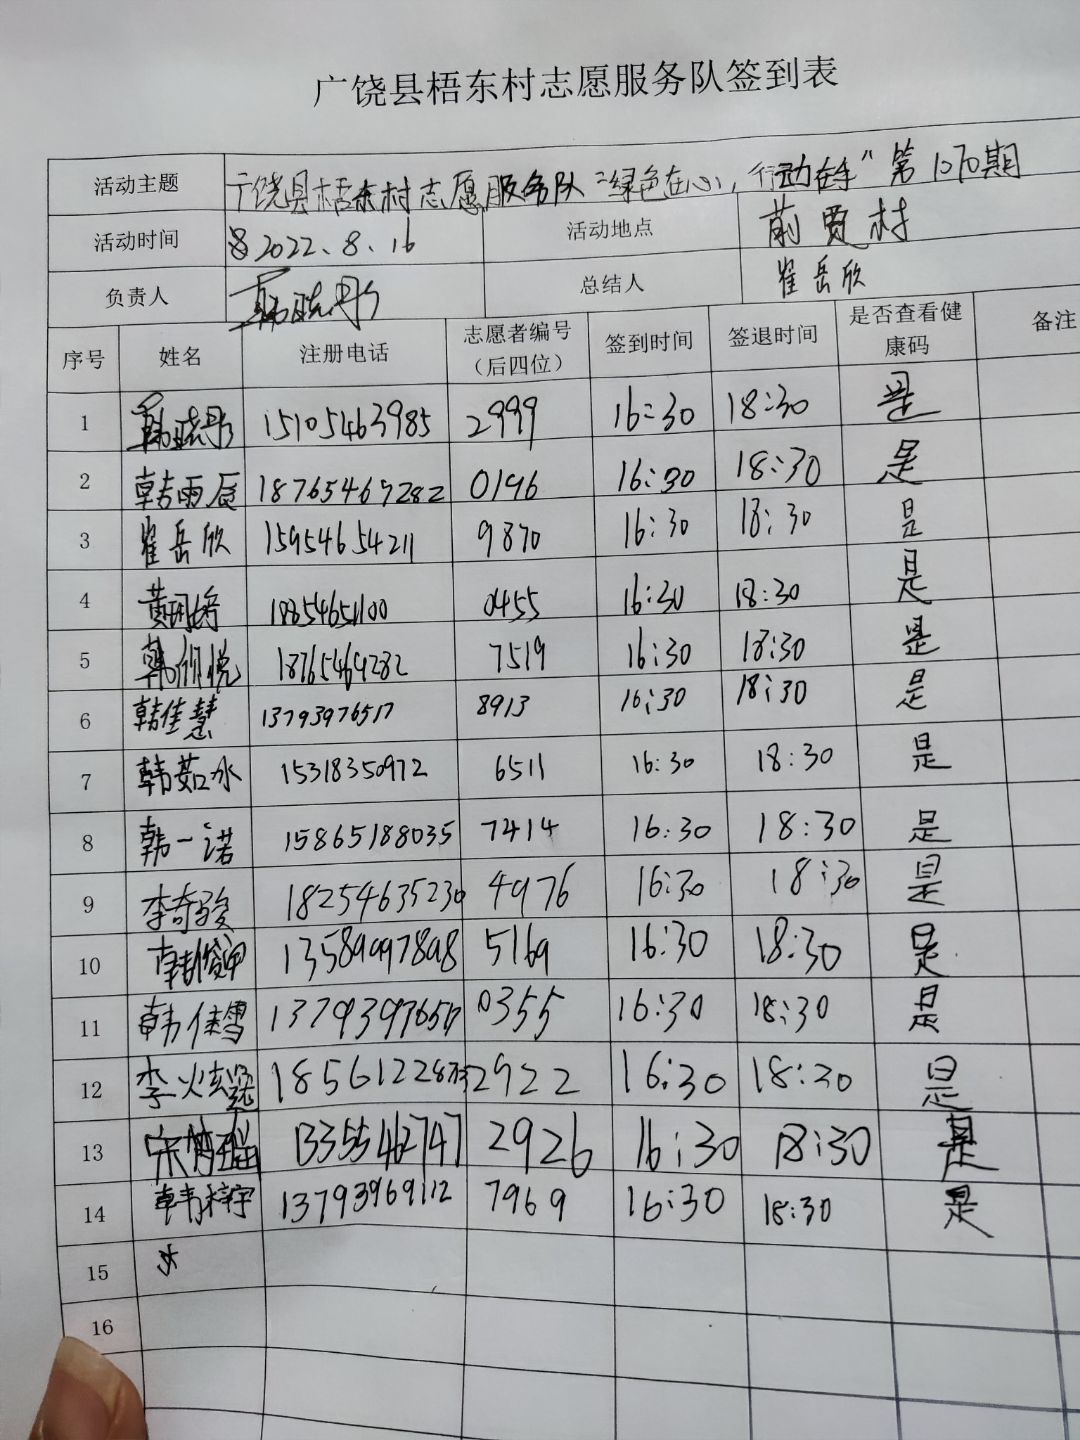 广饶县梧东村志愿服务队签到表
活动主题 广饶县梧东村志愿服务队“绿色在心，行动在手”第1070期
活动时间 2022.8.16 活动地点 前贾村
负责人 韩晓彤 总结人 崔岳欣
序号 姓名 注册电话 志愿者编号（后四位） 签到时间 签退时间 是否查看健康码 备注
1 韩晓彤 15105463985 2999 16:30 18:30 是
2 韩雨辰 18765467282 0196 16:30 18:30 是
3 崔岳欣 15954654211 9870 16:30 18:30 是
4 18854651100 0455 16:30 18:30 是
5 韩欣悦 18765467282 7519 16:30 18:30 是
6 韩佳慧 13793976517 8913 16:30 18:30 是
7 韩茹冰 15318350972 6511 16:30 18:30 是
8 韩一诺 15865188035 7414 16:30 18:30 是
9 李奇骏 18254635230 4976 16:30 18:30 是
10 13589997898 5169 16:30 18:30 是
11 韩佳雪 13793976517 0355 16:30 18:30 是
12 2922 16:30 18:30 是
13 13355462747 2926 16:30 18:30 是
14 韩梓宇 13793969112 7969 16:30 18:30 是
15
16